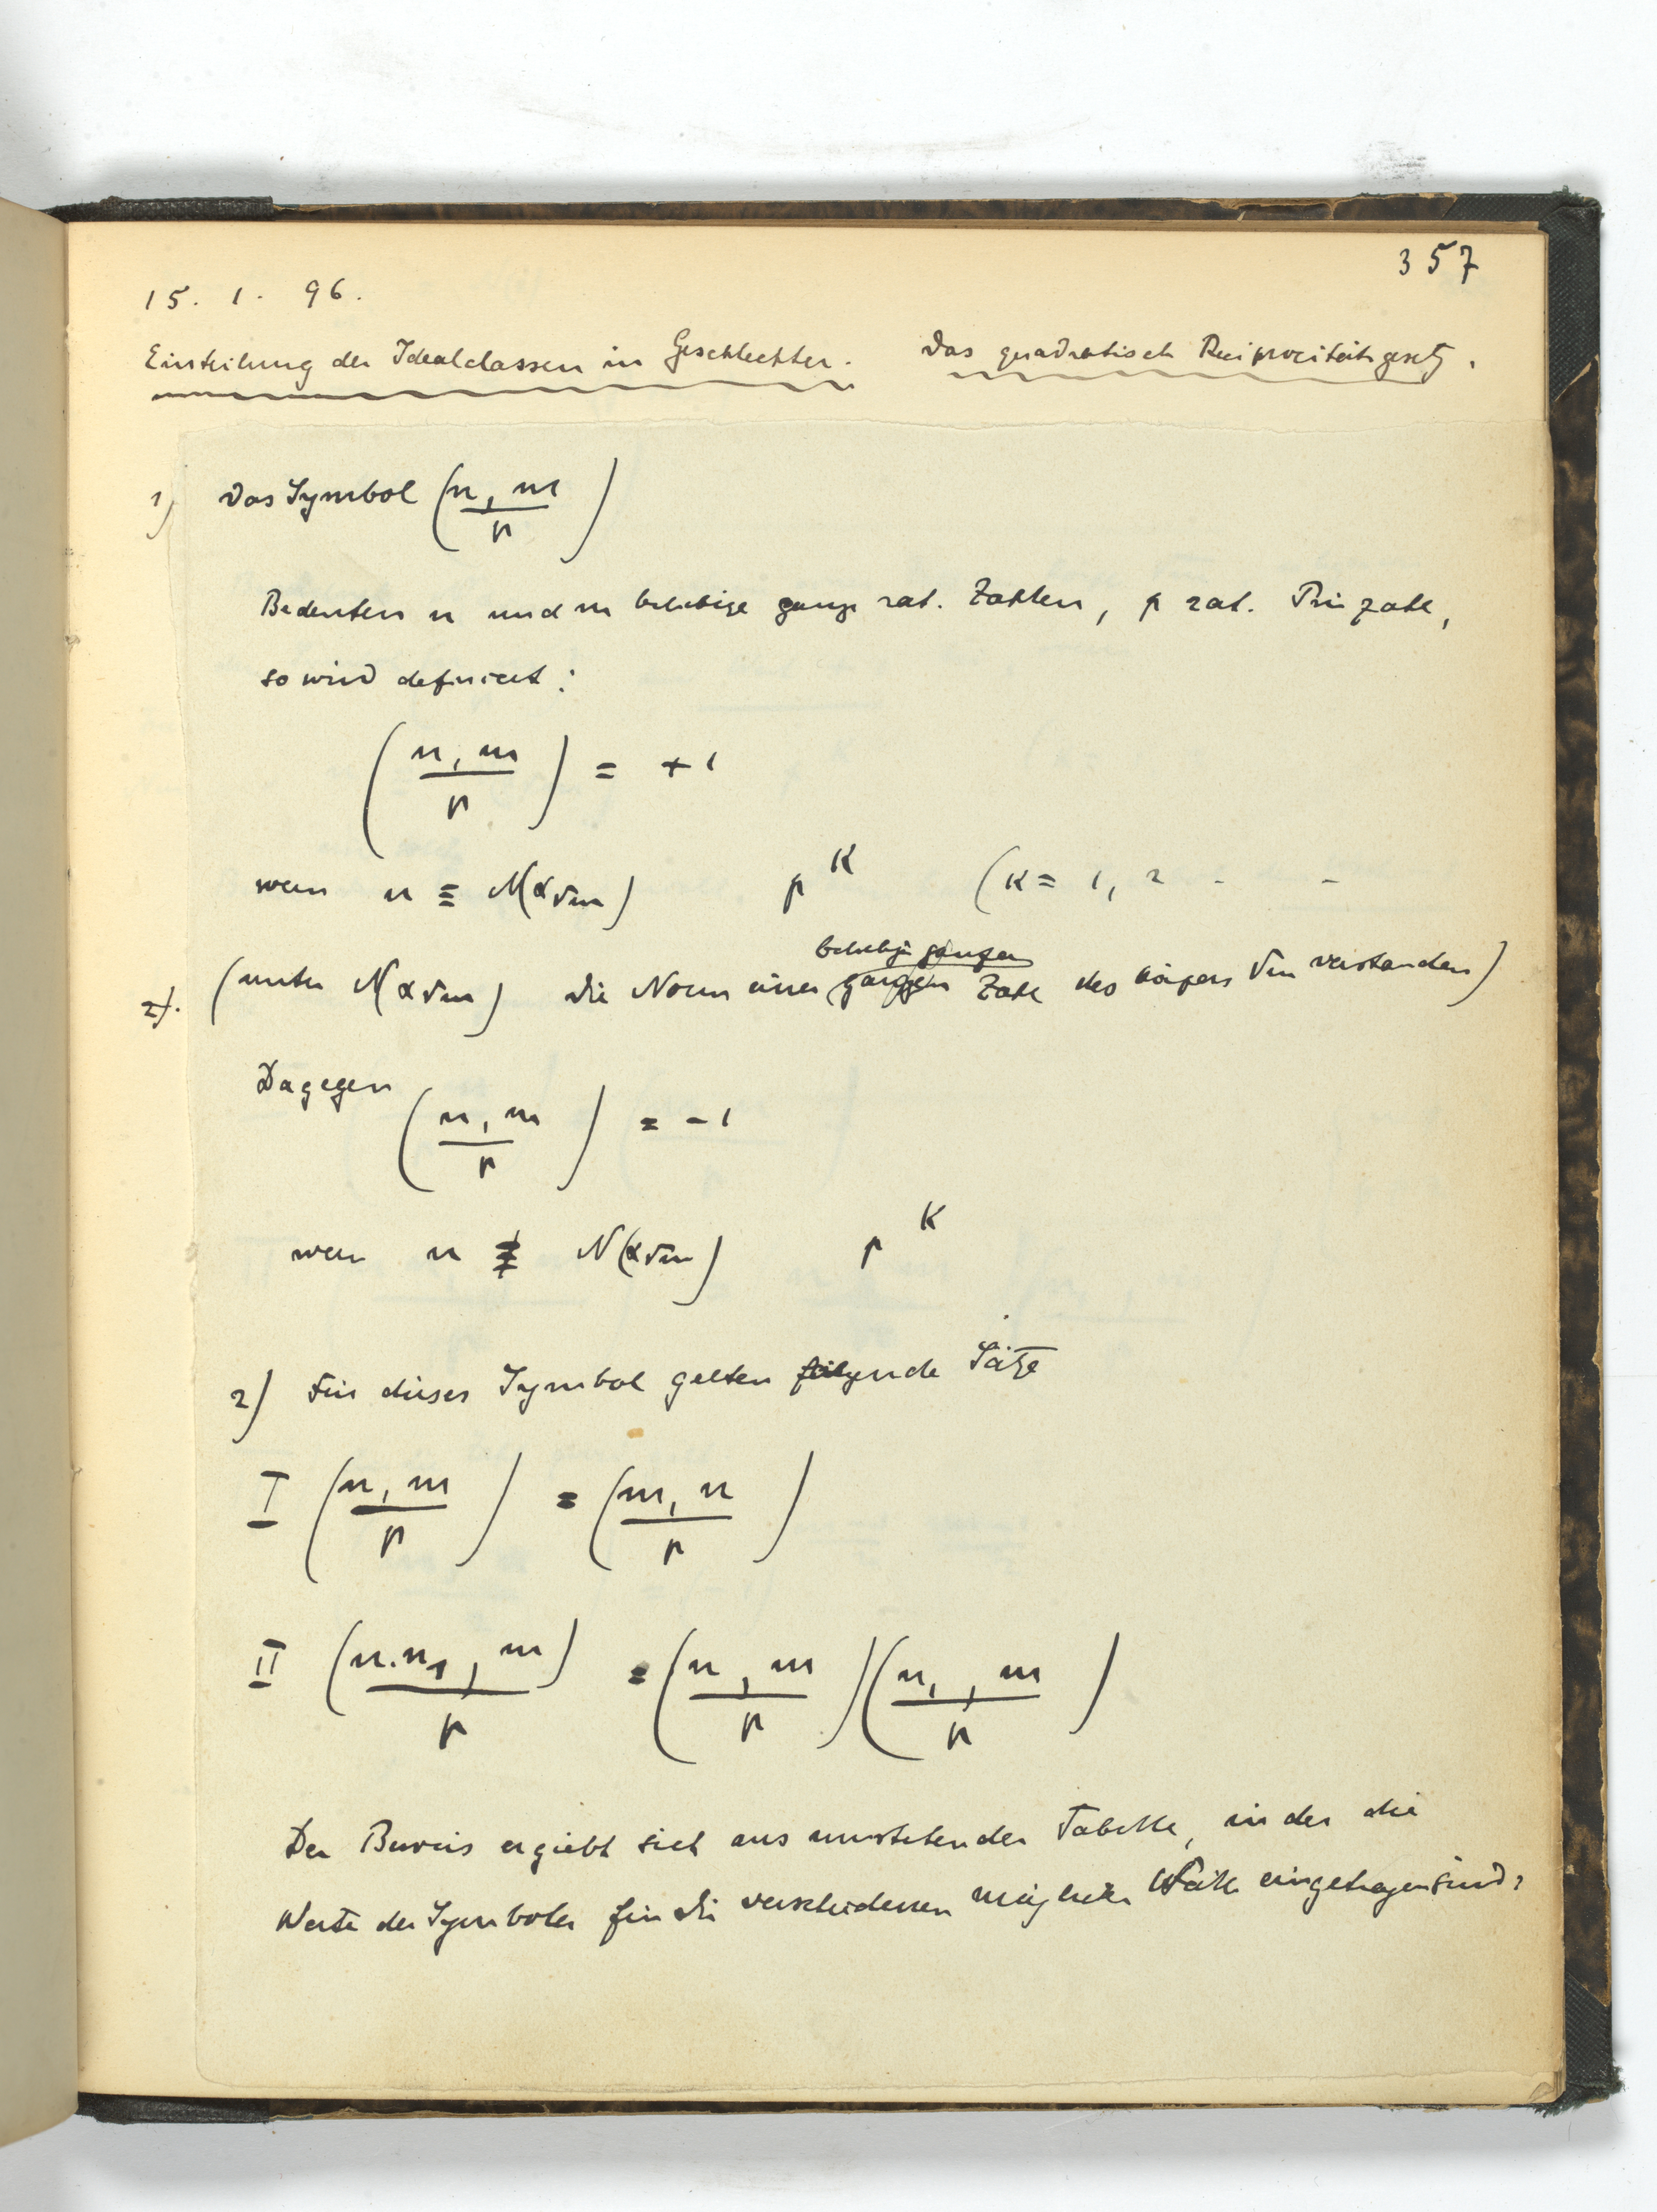 357
15. 1. 96.
Einteilung der Idealclassen in Geschlechter. Das quadratisch Reciprocitätsgesetz.
1) Das Symbol (n, m / p)
Bedeuten n und m beliebige ganze rat. Zahlen, p rat. Primzahl,
so wird definiert:
(n, m / p) = +1
wenn n ≡ N(α√m) p^K (K = 1, 2 - -
beliebig ganzen
2). (unter N(α√m) die Norm einer ganzen Zahl des Körpers √m verstanden)
Dagegen
(n, m / p) = -1
wenn n ≢ N(α√m) p^K
2) Für dieses Symbol gelten folgende Sätze
I (n, m / p) = (m, n / p)
II (n.n₁, m / p) = (n, m / p)(n₁, m / p)
Der Beweis ergiebt sich aus umstehender Tabelle, in der die
Werte der Symbole für die verschiedenen möglichen Fälle eingetragen sind: